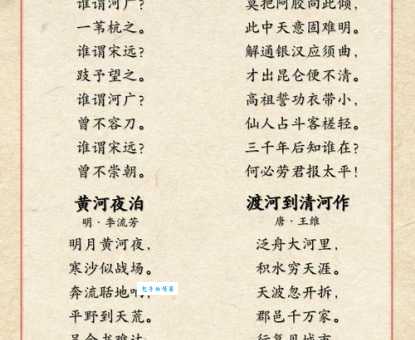 谁谓河广?
一苇杭之。
谁谓宋远?
跂予望之。
谁谓河广?
曾不容刀。
谁谓宋远?
曾不崇朝。
黄河夜泊
明·李流芳
明月黄河夜,
寒沙似战场。
奔流聒地响,
平野到天荒。
莫把阿胶向此倾,
此中天意固难明。
解通银汉应须曲,
才出昆仑便不清。
高祖誓功衣带小,
仙人占斗客槎轻。
三千年后知谁在?
何必劳君报太平!
渡河到清河作
唐·王维
泛舟大河里,
积水穷天涯。
天波忽开拆,
郡邑千万家。
行复见城市,